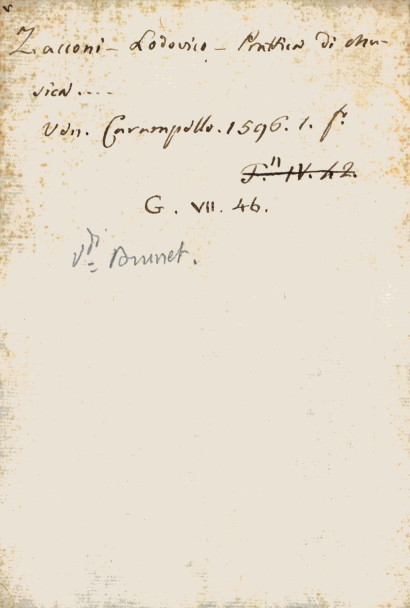 Zacconi - Lodovico - Prattica di mu-
sica....
Ven. Carampello. 1596. 1. f.º
F.II IV. 42.
G. VII. 46.
V.di Brunet.